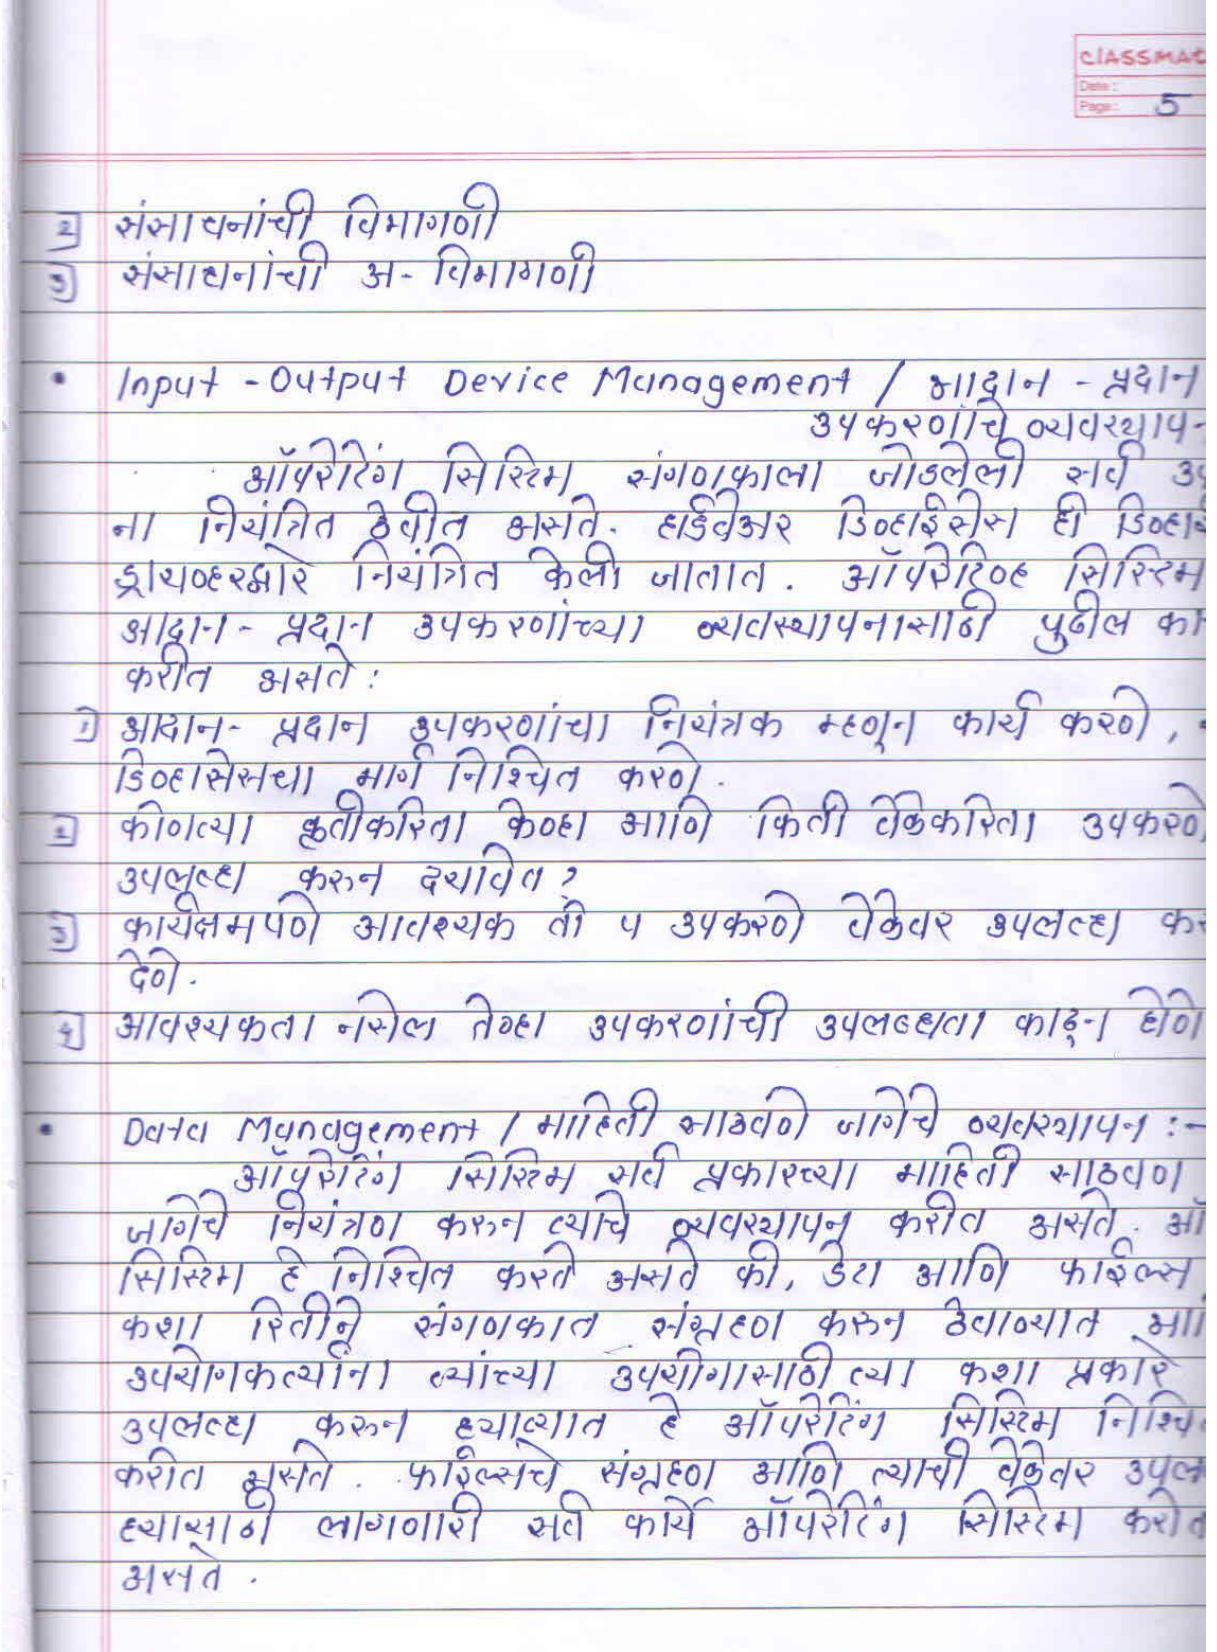 CLASSMAT
Date :
Page : 5
2] संसाधनांची विभागणी
3] संसाधनांची अ- विभागणी
• Input - Output Device Management / आदान - प्रदान
उपकरणांचे व्यवस्थाप
ऑपरेटिंग सिस्टिम संगणकाला जोडलेली सर्व उप
ना नियंत्रित ठेवीत असते. हार्डवेअर डिव्हाईसेस ही डिव्हाई
ड्रायव्हरद्वारे नियंत्रित केली जातात. ऑपरेटिव्ह सिस्टिम
आदान - प्रदान उपकरणांच्या व्यवस्थापनासाठी पुढील का
करीत असते :
1] आदान - प्रदान उपकरणांचा नियंत्रक म्हणून कार्य करणे,
डिव्हासेसचा मार्ग निश्चित करणे.
2] कोणत्या कृतीकरिता केव्हा आणि किती वेळेकरिता उपकरणे
उपलब्ध करुन दयावित ?
3] कार्यक्षमपणे आवश्यक ती प उपकरणे वेळेवर उपलब्ध कर
देणे.
4] आवश्यकता नसेल तेव्हा उपकरणांची उपलब्धता काढून घेणे
• Data Management / माहिती साठवणे जागेचे व्यवस्थापन :-
ऑपरेटिंग सिस्टिम सर्व प्रकारच्या माहिती साठवण
जागेचे नियंत्रण करुन त्याचे व्यवस्थापन करीत असते. ऑ
सिस्टिम हे निश्चित करते असते की, डेटा आणि फाईल्स
कशा रितीने संगणकात संग्रहण करुन ठेवाव्यात आ
उपयोगकर्त्यांना त्यांच्या उपयोगासाठी त्या कशा प्रकारे
उपलब्ध करुन घ्याव्यात हे ऑपरेटिंग सिस्टिम निश्चि
करीत असते. फाईल्सचे संग्रहण आणि त्याची वेळेवर उपल
ध्यासाठी लागणारी सर्व कार्ये ऑपरेटिंग सिस्टिम करीत
असते.